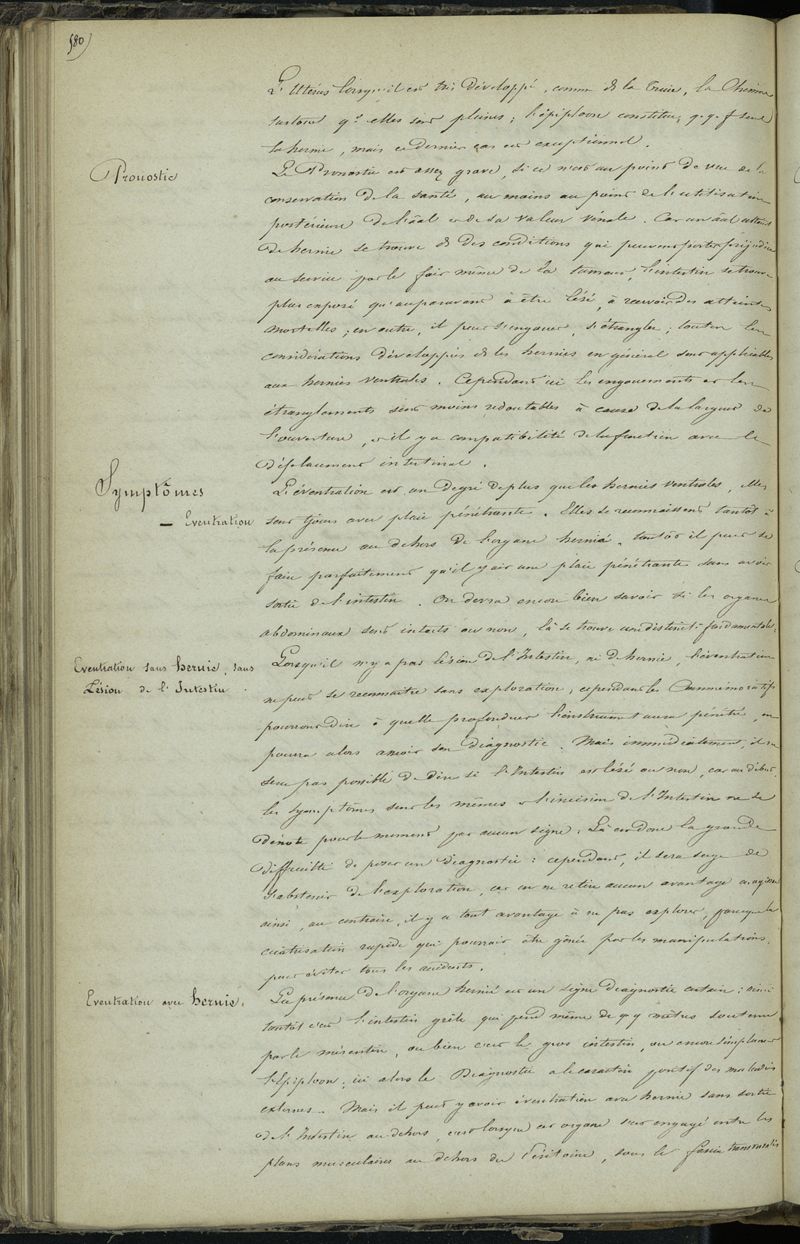 580)
L'Utérus lorsqu'il est très développé, comme ds la Truie, la Chienne
surtout qd elles sont pleines; l'épiploon constitue, q.q.f seul
la hernie, mais ce dernier cas est exceptionnel.
Pronostic
Le Pronostic est assez grave, si ce n'est au point de vue de la
conservation de la santé, au moins au point de l'utilisation
postérieure de l'aal et de sa valeur vénale. Car un aal atteint
de hernie se trouve ds des conditions qui peuvent porter préjudice
au service par le fait même de la tumeur, l'intestin se trouve
plus exposé qu'auparavant à être lésé, à recevoir des atteintes
mortelles; en outre, il peut s'engouer, s'étrangler; toutes les
considérations développées ds les hernies en général sont applicables
aux hernies ventrales. Cependant ici les engouements et les
étranglements sont moins redoutables à cause de la largeur de
l'ouverture, et il y a compatibilité de la fonction avec le
déplacement intestinal.
Symptômes
— Eventration
L'éventration est un degré de plus que les hernies ventrales, elles
sont tjours avec plaie pénétrante. Elles se reconnaissent tantôt à
la présence au dehors de l'organe hernié, tantôt il peut se
faire parfaitement qu'il y ait une plaie pénétrante sans avoir
sortie de l'intestin. On devra encore bien savoir si les organes
abdominaux sont intacts ou non, là se trouve une distinct: fondamentale:
Eventration sans hernie, sans
Lésion de l'Intestin.
Lorsqu'il n'y a pas lésion de l'Intestin, ni de hernie, l'éventration
ne peut se reconnaître sans exploration, cependant les Commémoratifs
pourront dire à quelle profondeur l'instrument aura pénétré, on
pourra alors asseoir son diagnostic. Mais immédiatement, il ne
sera pas possible de dire si l'Intestin est lésé ou non, car au début,
les symptômes sont les mêmes et l'incision de l'Intestin ne se
dénote pour le moment par aucun signe. Là est donc la grande
difficulté de poser un diagnostic: cependant, il sera sage de
s'abstenir de l'exploration, car on ne retire aucun avantage à agir
ainsi, au contraire, il y a tout avantage à ne pas explorer, parceque la
cicatrisation rapide qui pourrait être gênée par les manipulations,
peut éviter tous les accidents.
Eventration avec hernie.
La présence de l'organe hernié est un signe diagnostic certain: ainsi
tantôt c'est l'intestin grêle qui pend même de q q mètres soutenu
par le mésentère, ou bien c'est le gros intestin, ou encore simplement
l'Epiploon; ici alors le Diagnostic a le caractère positif des maladies
externes. Mais il peut y avoir éventration avec hernie sans sortie
de l'Intestin au dehors, c'est lorsque cet organe s'est engagé entre les
plans musculaires en dehors du Péritoine, sous le fascia transversalis